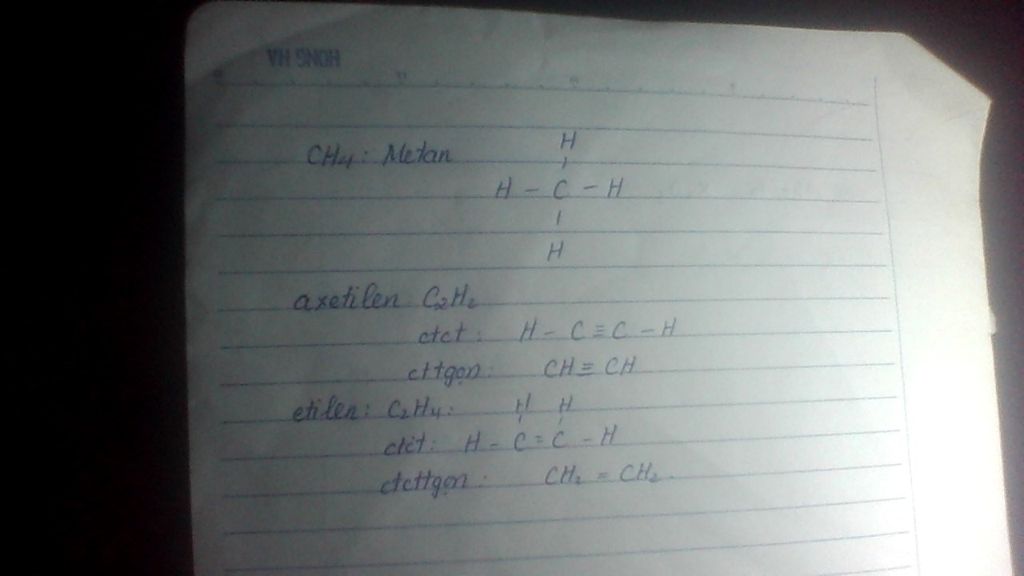 HONG HA
H
CH4: Metan
H - C - H
H
axetilen C2H2
ctct: H - C ≡ C - H
cttgọn: CH ≡ CH
etilen: C2H4: H H
ctct: H - C = C - H
ctcttgọn: CH2 = CH2.